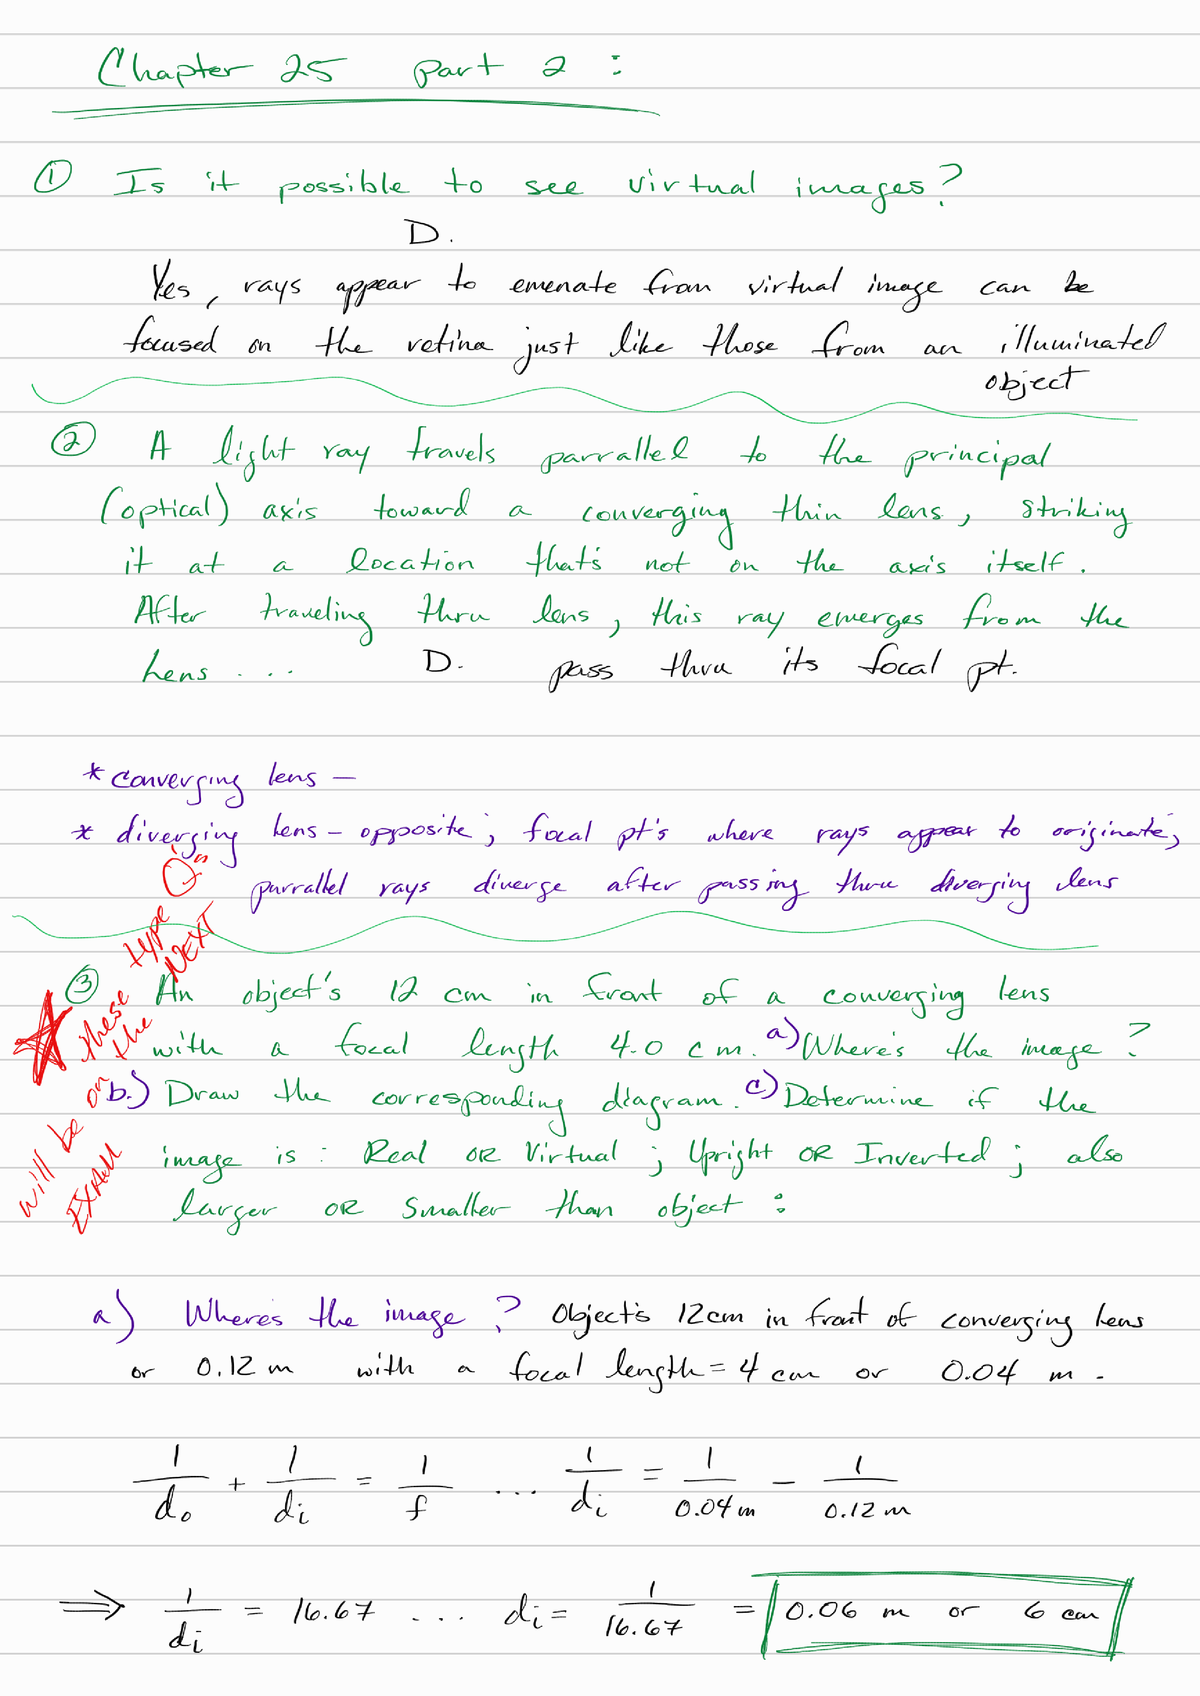 Chapter 25 part 2 :
① Is it possible to see virtual images?
D.
Yes, rays appear to emenate from virtual image can be
focused on the retina just like those from an illuminated
object
② A light ray travels parrallel to the principal
(optical) axis toward a converging thin lens, striking
it at a location that's not on the axis itself.
After traveling thru lens, this ray emerges from the
lens .... D. pass thru its focal pt.
* converging lens —
* diverging lens – opposite; focal pt's where rays appear to originate;
parrallel rays diverge after passing thru diverging lens
these type Q's
will be on the NEXT
EXAM
③ An object's 12 cm in front of a converging lens
with a focal length 4.0 cm. a) Where's the image?
b.) Draw the corresponding diagram. c) Determine if the
image is : Real OR Virtual ; Upright OR Inverted ; also
larger OR Smaller than object :
a) Where's the image ? Object's 12cm in front of converging lens
or 0.12 m with a focal length = 4 cm or 0.04 m.
1/do + 1/di = 1/f ... 1/di = 1/0.04m – 1/0.12m
⇒ 1/di = 16.67 .... di = 1/16.67 = 0.06 m or 6 cm